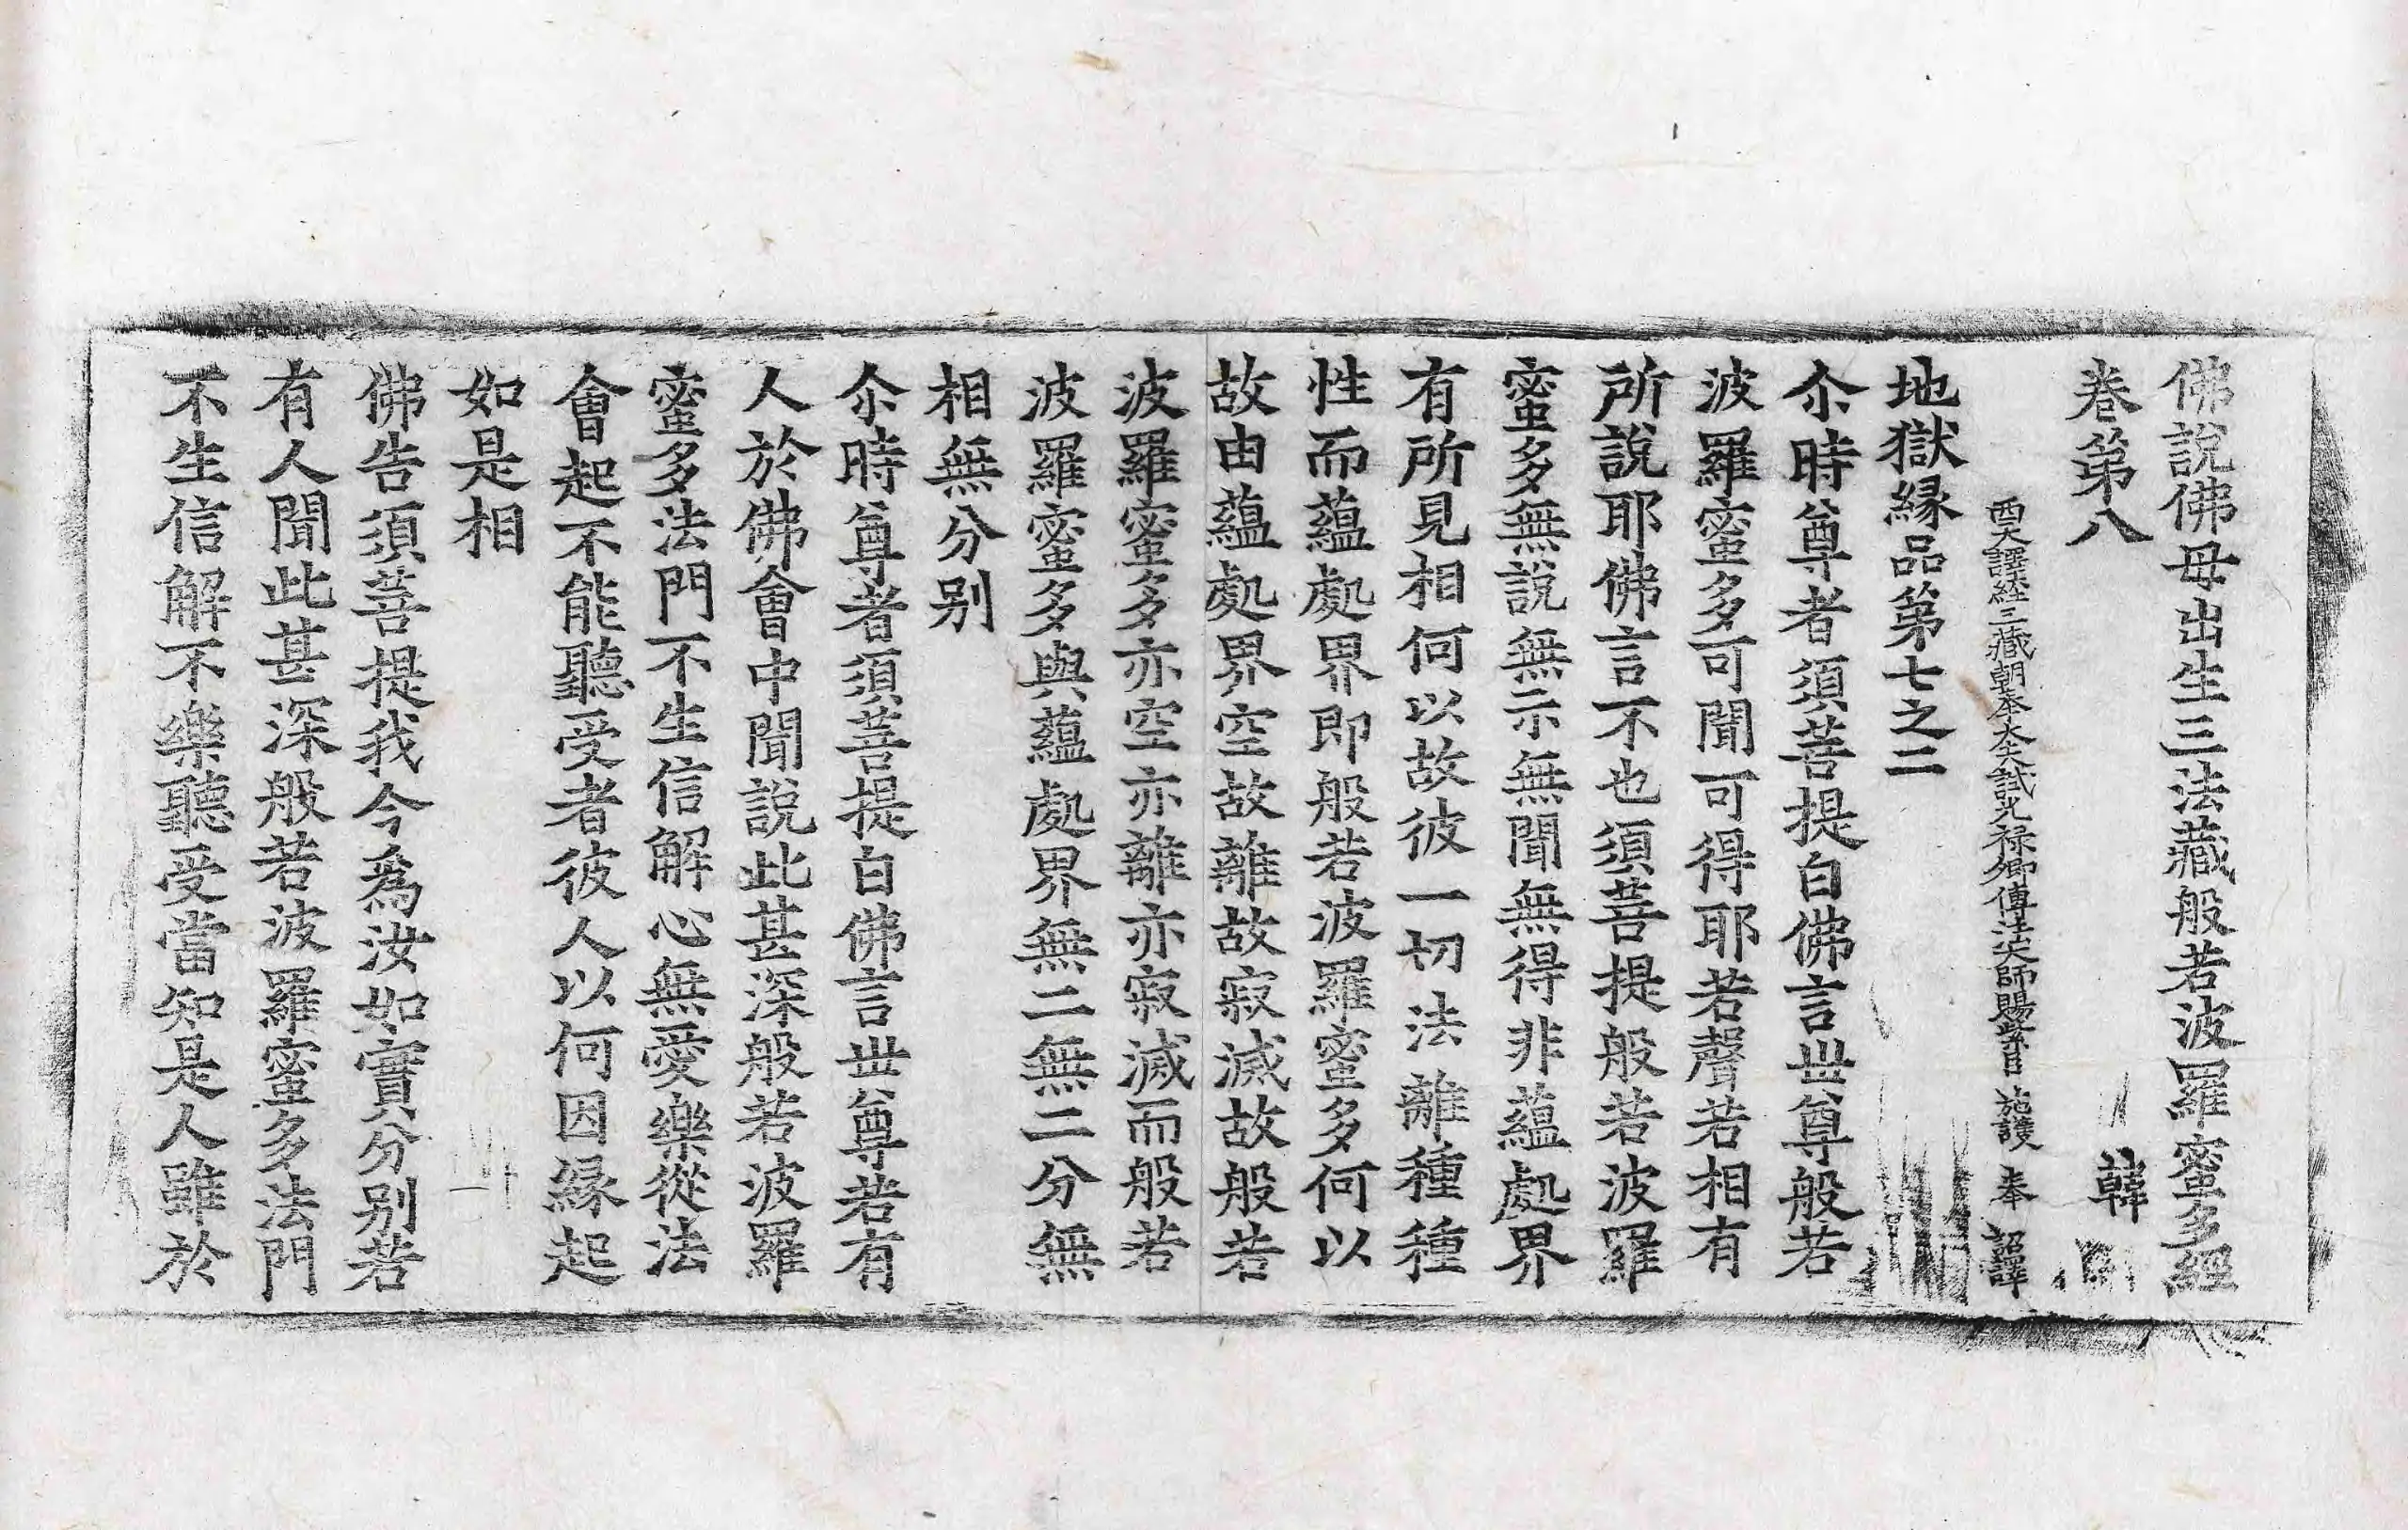 佛說佛母出生三法藏般若波羅蜜多經
卷第八 韓
西天譯經三藏朝奉大夫試光祿卿傳法大師賜紫臣 施護 奉 詔譯
地獄緣品第七之二
尒時尊者須菩提白佛言丗尊般若
波羅蜜多可聞可得耶若聲若相有
所說耶佛言不也須菩提般若波羅
蜜多無說無示無聞無得非蘊處界
有所見相何以故彼一切法離種種
性而蘊處界即般若波羅蜜多何以
故由蘊處界空故離故寂滅故般若
波羅蜜多亦空亦離亦寂滅而般若
波羅蜜多與蘊處界無二無二分無
相無分別
尒時尊者須菩提白佛言丗尊若有
人於佛會中聞說此甚深般若波羅
蜜多法門不生信解心無愛樂從法
會起不能聽受者彼人以何因緣起
如是相
佛告須菩提我今爲汝如實分別若
有人聞此甚深般若波羅蜜多法門
不生信解不樂聽受當知是人雖於